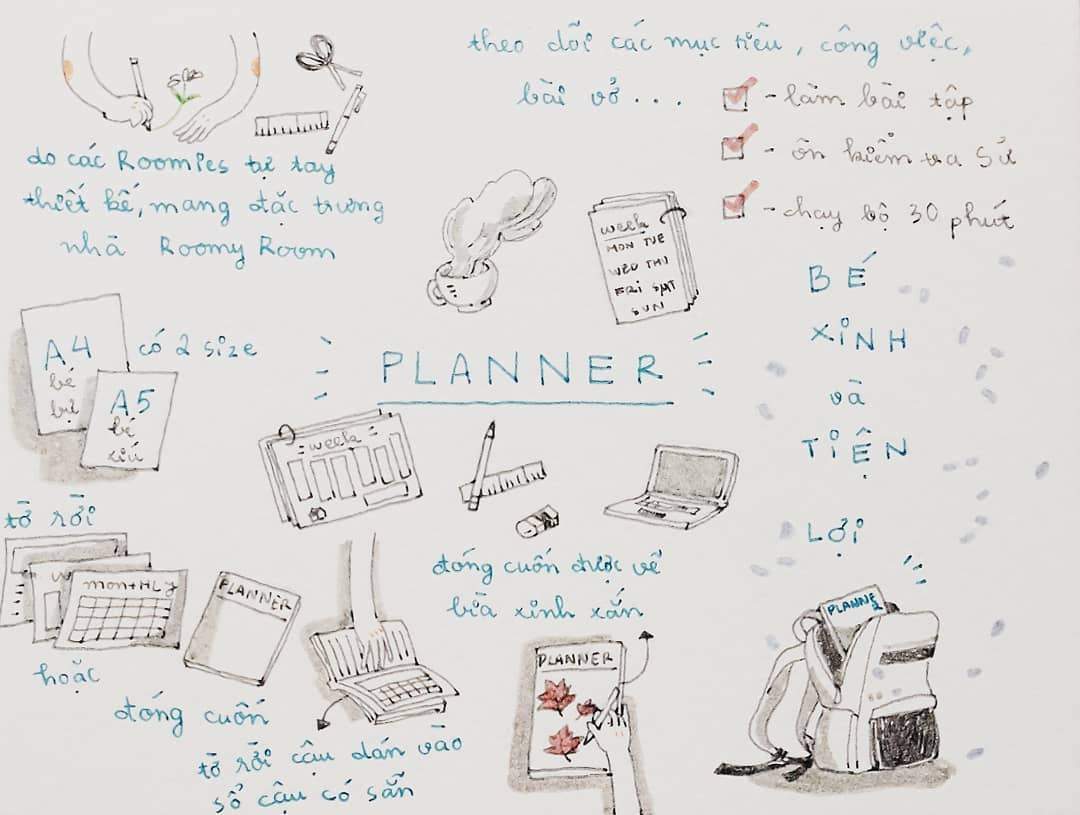 theo dõi các mục tiêu, công việc,
bài vở...
- làm bài tập
- ôn kiểm tra sử
- chạy bộ 30 phút
do các Roomies tự tay
thiết kế, mang đặc trưng
nhà Roomy Room
week
MON TUE
WED THU
FRI SAT
SUN
A4
bé
bự
A5
bé
xíu
có 2 size
PLANNER
BÉ
XINH
và
TIỆN
LỢI
week
tờ rời
monthly
hoặc
PLANNER
đóng cuốn
tờ rời cậu dán vào
sổ cậu có sẵn
đóng cuốn được vẽ
bìa xinh xắn
PLANNER
PLANNE